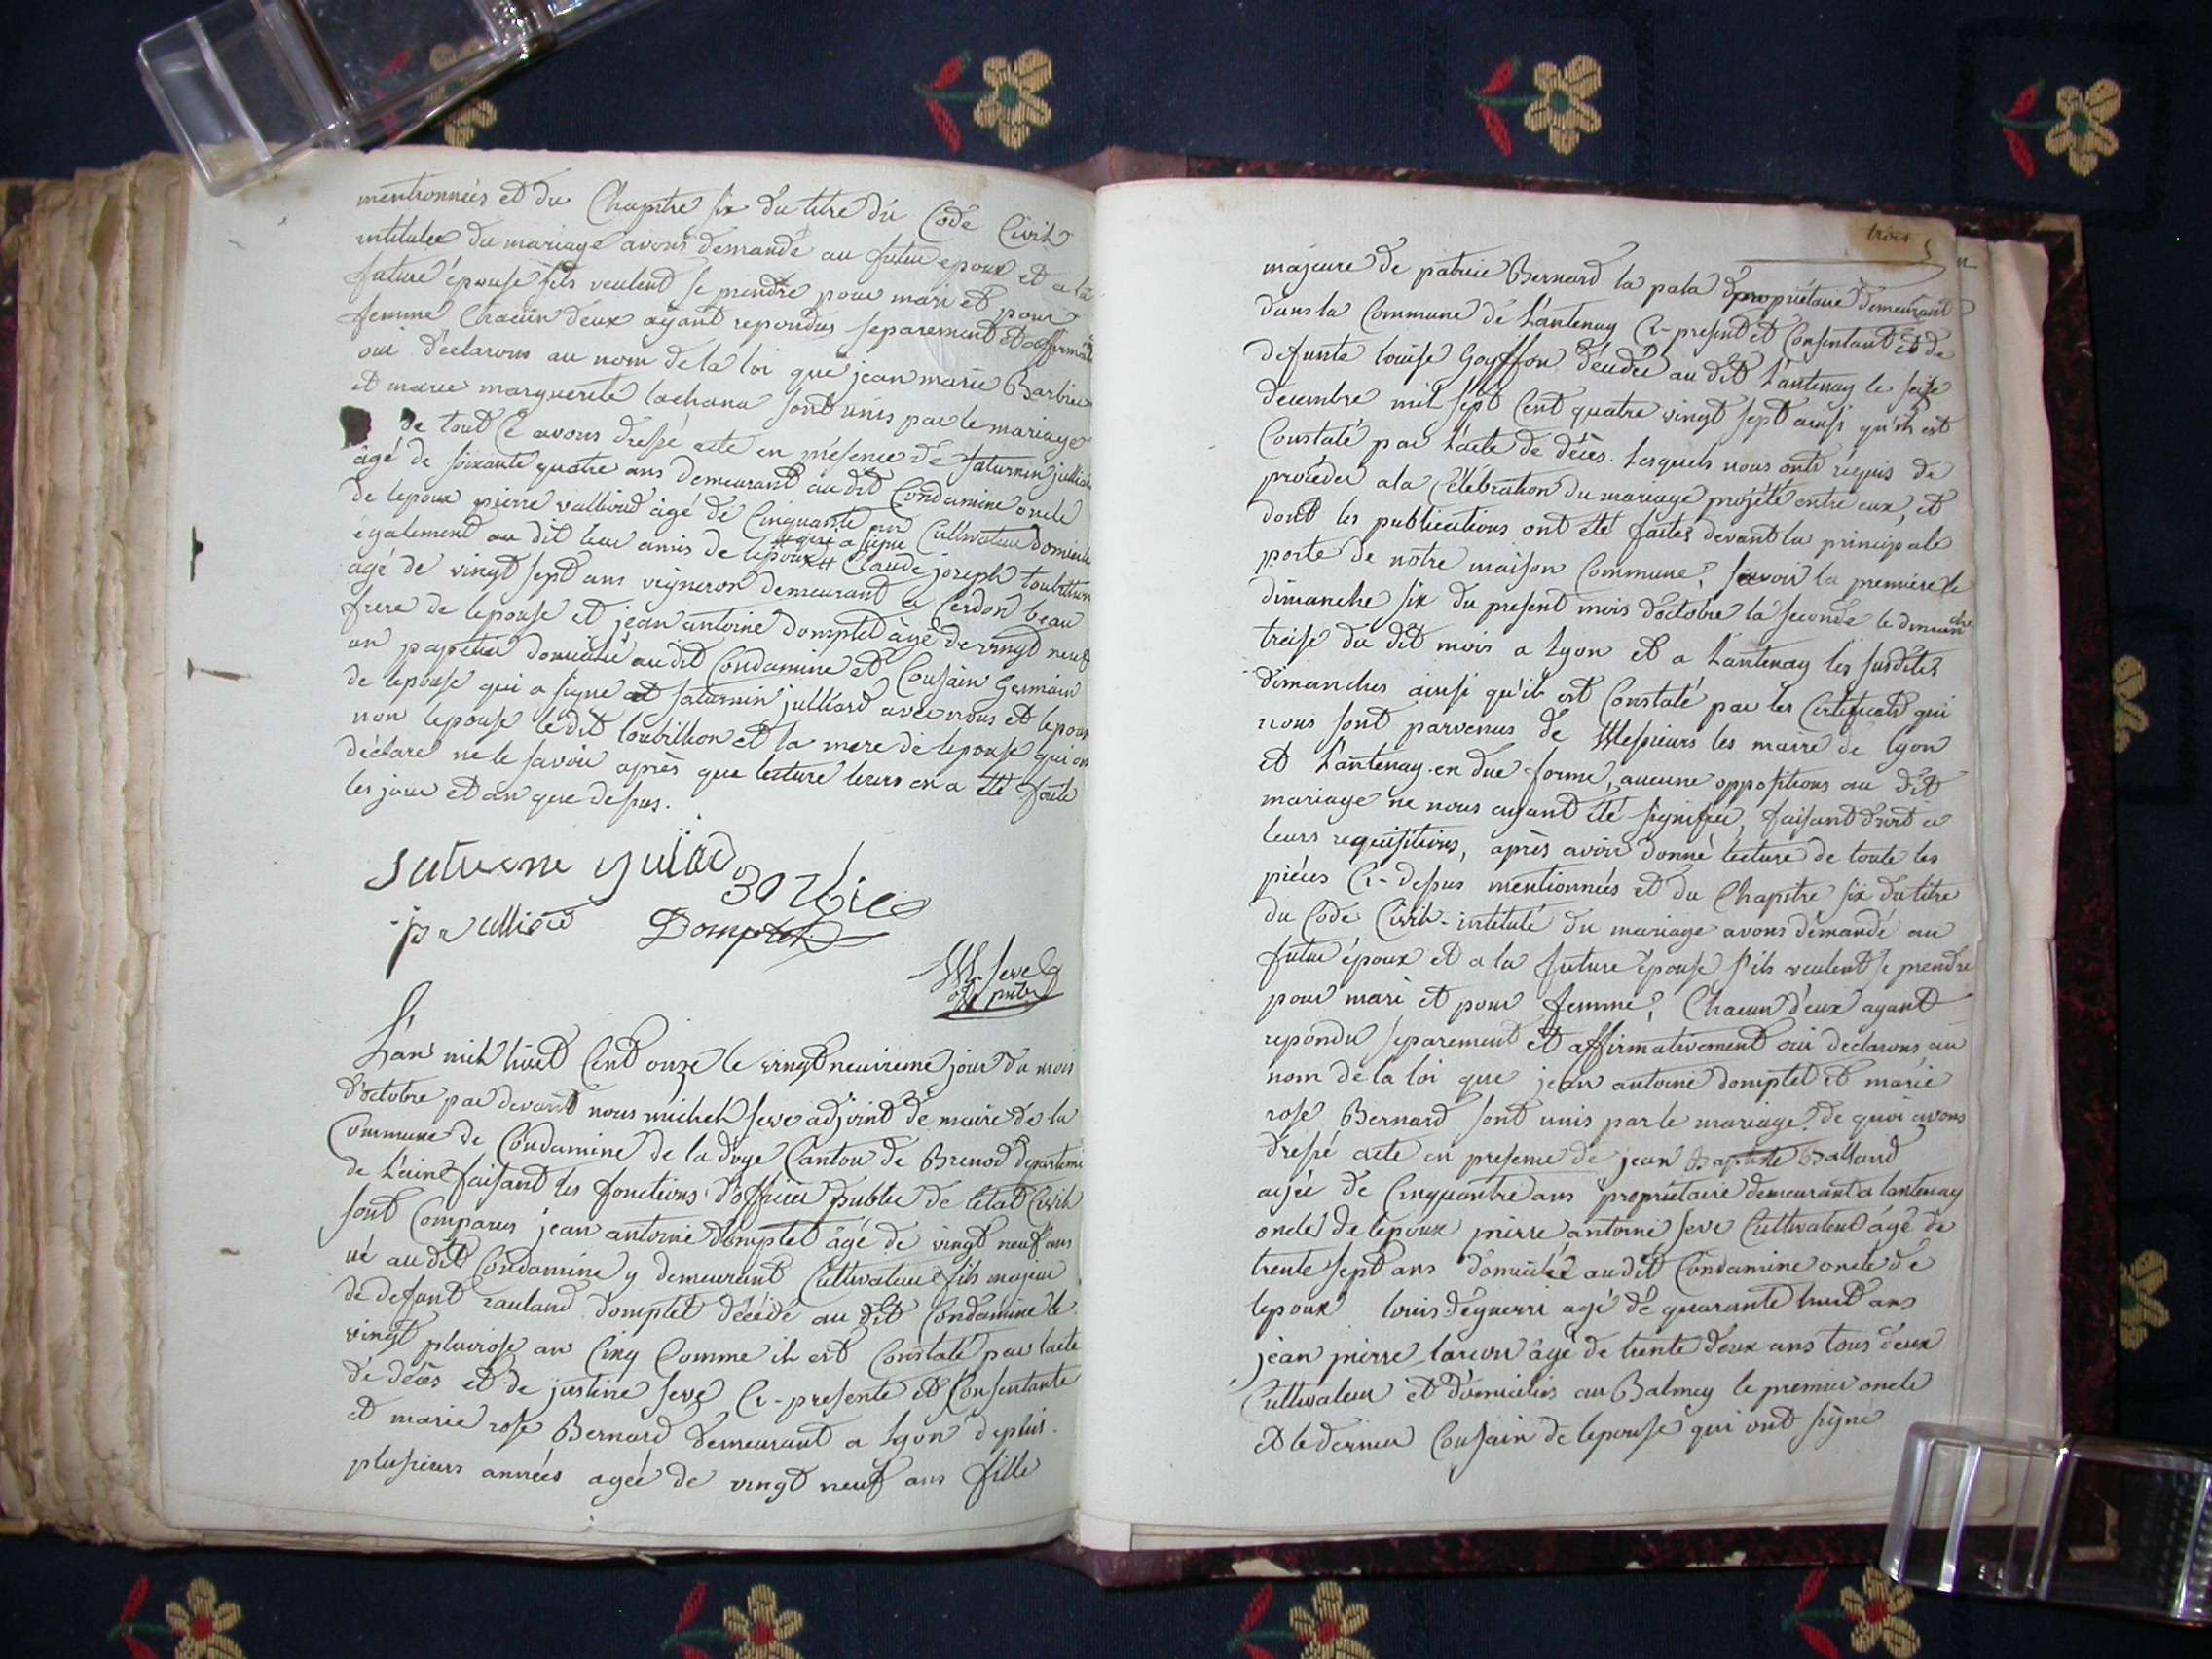 mentionnées et du Chapitre six du titre du Code Civil
intitulée du mariage avons demandé au futur epoux et a la
future épouse sils veulent se prendre pour mari et pour
femme Chacun deux ayant repondus separement et affirmati
oui declarons au nom de la loi que jean marie Barbier
et marie marguerite lachana sont unis par le mariage
De tout Ce avons dressé acte en présence de saturnin julliard
agé de soixante quatre ans demeurant au dit Condamine oncle
de lepoux pierre valliord agé de Cinquante
a signe
Cultivateur domicilie
également au dit lieu amis de lepoux Claude joseph toubillion
agé de vingt sept ans vigneron demeurant a Cerdon beau
frere de lepouse et jean antoine Domptet àgé de vingt neuf
an papetier domicilié au dit Condamine et Cousain Germain
de lepouse qui a signe et saturnin julliard avec nous et lepoux
non lepouse ledit toubillion et la mere de lepouse qui on
déclaré ne le savoir après que lecture leurs en a été faite
les jour et an que dessus.
Barbier
Domptet
M. seve
L'an mil huit Cent onze le vingt neuvieme jour du mois
d'octobre par devant nous michel seve adjoint de maire de la
Commune de Condamine de la doye Canton de Brenod departeme
de L'ain faisant les fonctions d'officier public de letat Civil
sont Comparus jean antoine domptet âgé de vingt neuf ans
né au dit Condamine y demeurant Cultivateur fils majeur
de defunt rauland domptet décédé au dit Condamine le
vingt pluviose an Cinq Comme il est Constaté par lacte
de décès et de justine seve Ci-presente et Consentante
et marie rose Bernard demeurant a Lyon depuis
plusieurs années agée de vingt neuf ans fille
trois
majeure de patrice Bernard la pala propriétaire demeurant
dans la Commune de Lantenay Ci-present et Consentant et de
defunte louise Goyffon décédée au dit Lantenay le seize
decembre mil sept Cent quatre vingt sept ainsi qu'il est
Constaté par L'acte de décès. Lesquels nous onts requis de
procéder a la Célébration du mariage projété entre eux, et
dont les publications ont été faites devant la principale
porte de notre maison Commune, savoir la premiere le
dimanche six du present mois d'octobre la seconde le dimanche
treise du dit mois a Lyon et a Lantenay les susdites
dimanches ainsi qu'il est Constaté par les Certificats qui
nous sont parvenus de Messieurs les maire de lyon
et L'antenay en due forme, aucune oppositions au dit
mariage ne nous ayant été signifiée, faisant droit a
leurs requisitions, après avoir donné lecture de toute les
piéces Ci-dessus mentionnées et du Chapitre six du titre
du Code Civil-intitulé du mariage avons demandé au
futur époux et a la future épouse s'ils veulent se prendre
pour mari et pour femme, Chacun d'eux ayant
repondu separement et affirmativement oui declarons au
nom de la loi que jean antoine domptet et marie
rose Bernard sont unis par le mariage. de quoi avons
dressé acte en presence de jean Baptiste Balland
agée de Cinquantre ans propriétaire demeurant a lantenay
oncle de lepoux pierre antoine seve Cultivateur âgé de
trente sept ans domicilié au dit Condamine oncle de
lepoux louis déguerri agé de quarante huit ans
jean pierre larcon âgé de trente deux ans tous deux
Cultivateur et domiciliés au Balmey le premier oncle
et le dernier Cousain de lepouse qui ont signé